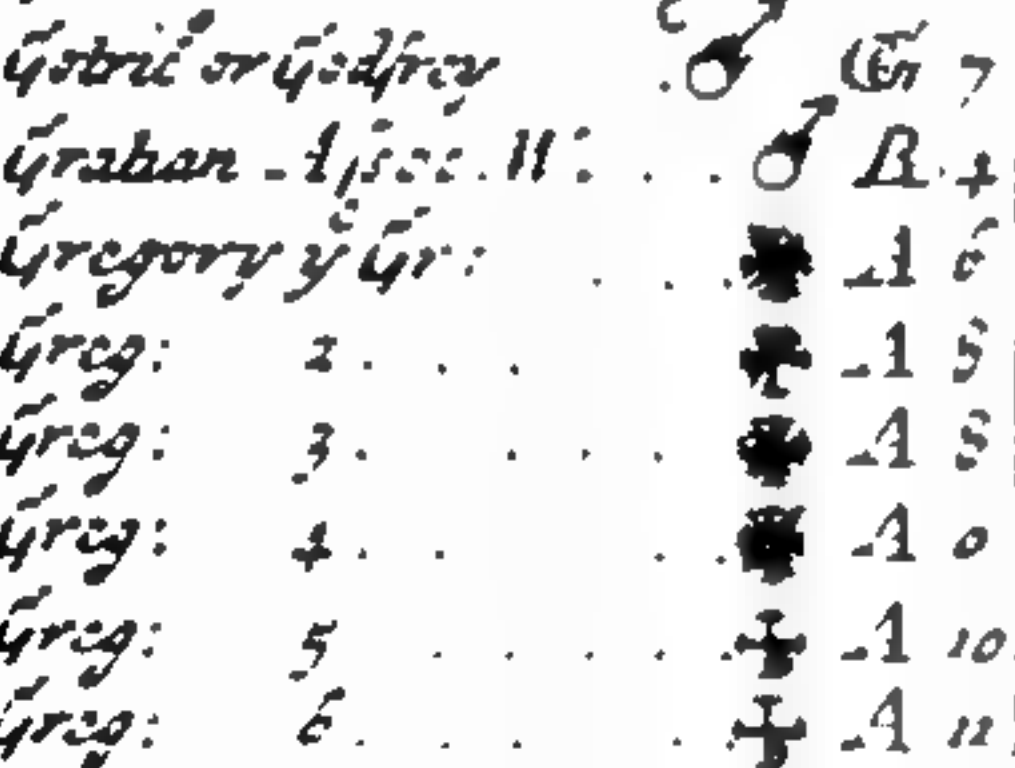 Gotric or Godfrey . ♂ Gr 7
Graham Apoc. 11: . . ♂ R. 4
Gregory yᵉ Gr: . . . ✠ A 6
Greg: 2 . . . ✠ A 8
Greg: 3 . . . . ✠ A 8
Greg: 4 . . . . ✠ A 0
Greg: 5 . . . . . ✠ A 10
Greg: 6 . . . . . ✠ A 11